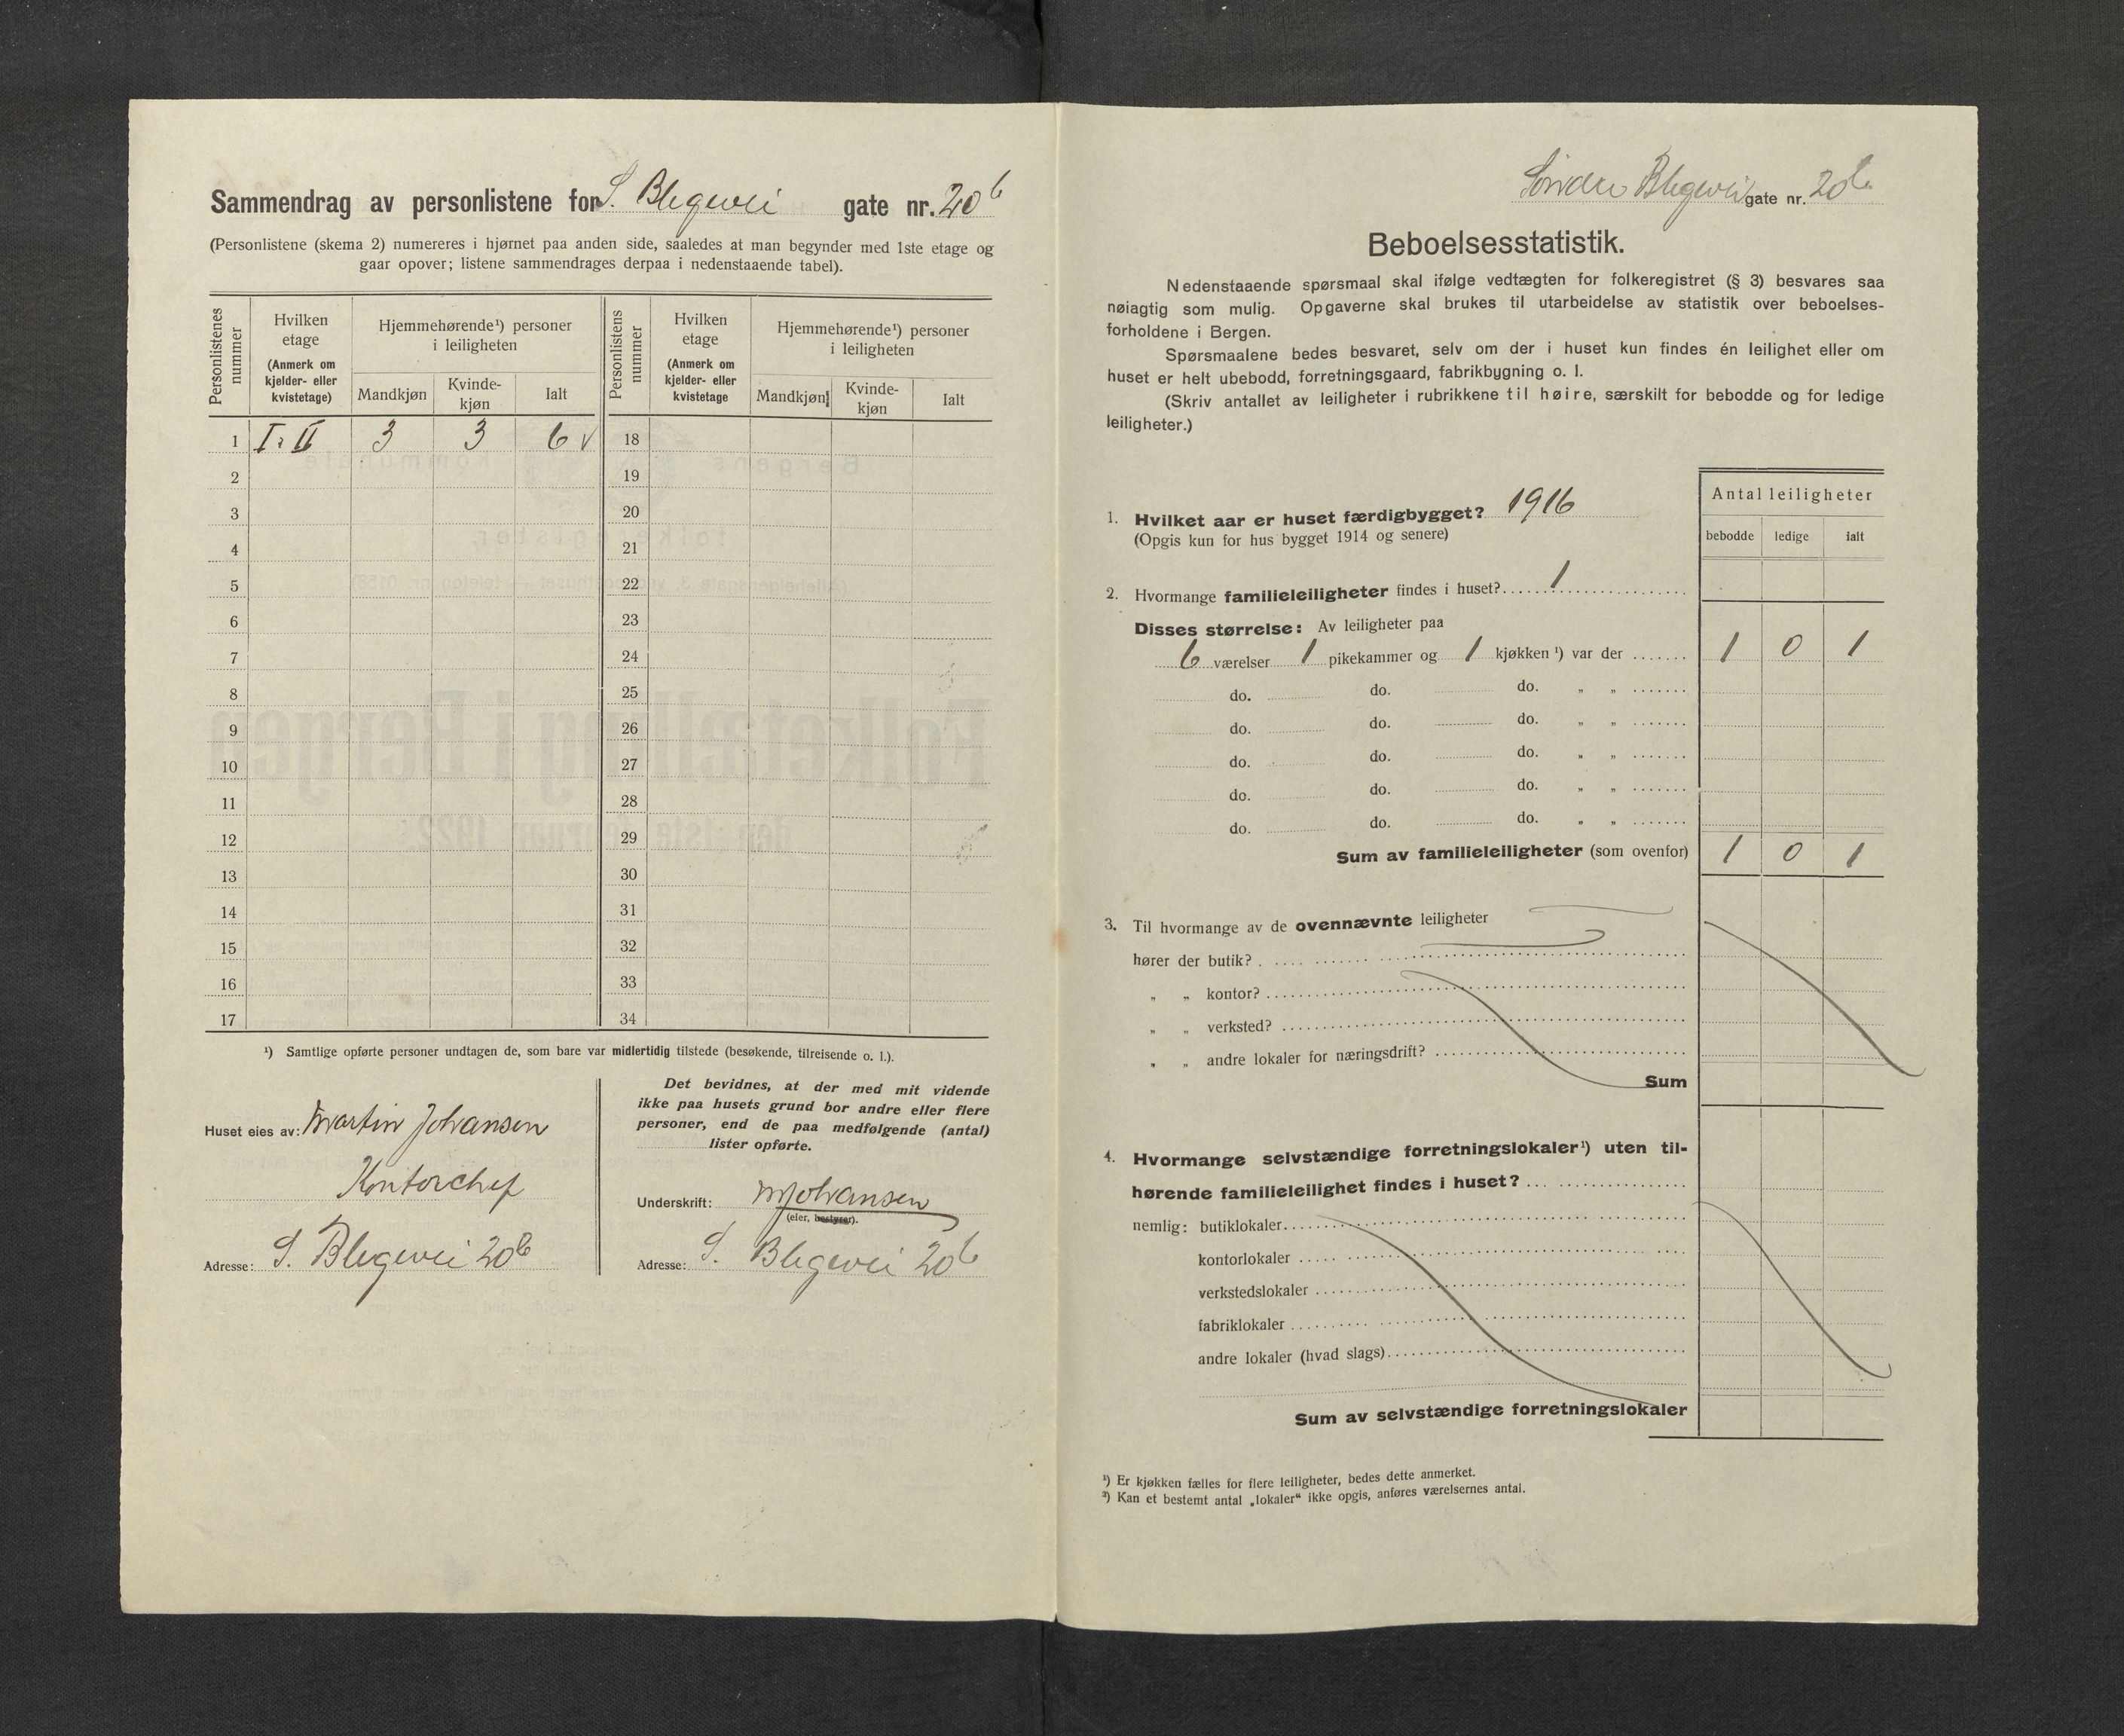 Sammendrag av personlistene for S. Blegevei gate nr. 20b
(Personlistene (skema 2) numereres i hjørnet paa anden side, saaledes at man begynder med 1ste etage og
gaar opover; listene sammendrages derpaa i nedenstaaende tabel).
Personlistenes nummer
Hvilken etage
(Anmerk om kjelder- eller kvistetage)
Hjemmehørende¹) personer i leiligheten
Mandkjøn Kvinde-kjøn Ialt
Personlistens nummer
Hvilken etage
(Anmerk om kjelder- eller kvistetage
Hjemmehørende¹) personer i leiligheten
Mandkjøn Kvinde-kjøn Ialt
1 I. II 3 3 6 v 18
2 19
3 20
4 21
5 22
6 23
7 24
8 25
9 26
10 27
11 28
12 29
13 30
14 31
15 32
16 33
17 34
¹) Samtlige opførte personer undtagen de, som bare var midlertidig tilstede (besøkende, tilreisende o. l.).
Huset eies av: Martin Johansen
Kontorchef
Adresse: S. Blegevei 20b
Det bevidnes, at der med mit vidende
ikke paa husets grund bor andre eller flere
personer, end de paa medfølgende (antal)
lister opførte.
Underskrift: MJohansen
(eier, bestyrer).
Adresse: S. Blegevei 20b
Søndre Blegevei gate nr. 20b
Beboelsesstatistik.
Nedenstaaende spørsmaal skal ifølge vedtægten for folkeregistret (§ 3) besvares saa
nøiagtig som mulig. Opgaverne skal brukes til utarbeidelse av statistik over beboelses-
forholdene i Bergen.
Spørsmaalene bedes besvaret, selv om der i huset kun findes én leilighet eller om
huset er helt ubebodd, forretningsgaard, fabrikbygning o. l.
(Skriv antallet av leiligheter i rubrikkene til høire, særskilt for bebodde og for ledige
leiligheter.)
Antal leiligheter
bebodde ledige ialt
1. Hvilket aar er huset færdigbygget? 1916
(Opgis kun for hus bygget 1914 og senere)
2. Hvormange familieleiligheter findes i huset? 1
Disses størrelse: Av leiligheter paa
6 værelser 1 pikekammer og 1 kjøkken¹) var der 1 0 1
do. do. do. „ „
do. do. do. „ „
do. do. do. „ „
do. do. do. „ „
do. do. do. „ „
Sum av familieleiligheter (som ovenfor) 1 0 1
3. Til hvormange av de ovennævnte leiligheter
hører der butik?
„ „ kontor?
„ „ verksted?
„ „ andre lokaler for næringsdrift?
Sum
4. Hvormange selvstændige forretningslokaler¹) uten til-
hørende familieleilighet findes i huset?
nemlig: butiklokaler
kontorlokaler
verkstedslokaler
fabriklokaler
andre lokaler (hvad slags)
Sum av selvstændige forretningslokaler
¹) Er kjøkken fælles for flere leiligheter, bedes dette anmerket.
²) Kan et bestemt antal „lokaler“ ikke opgis, anføres værelsernes antal.